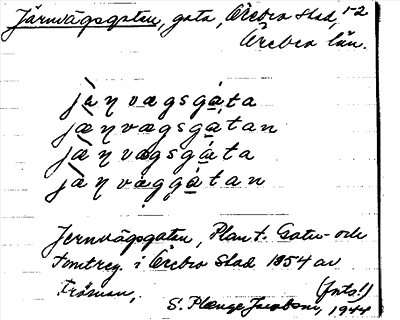 Järnvägsgatan, gata, Örebro stad, 1-2
Örebro län.
jà̤ŋvægsgáta
jæ̀ŋvægsgátan
jæ̀ŋvagsgáta
jàŋvaggátan
Jernvägsgatan, Plan t. Gatu- och
Tomtreg. i Örebro Stad 1854 av
Fröman, (Jnts!)
S. Plænge Jacobson, 1944